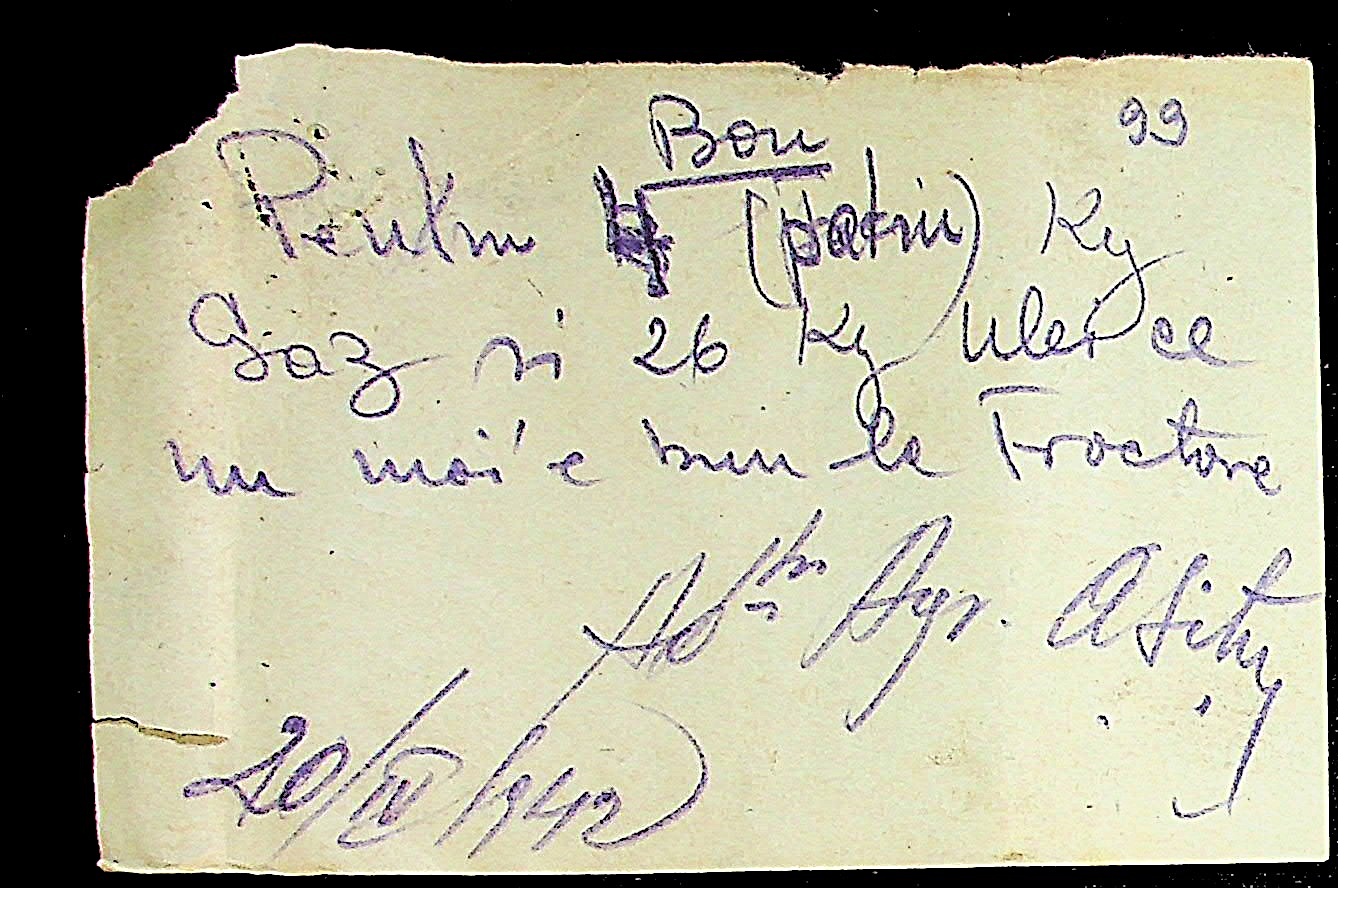 Bon 99
Pentru 4 (patru) Kg
Gaz si 26 Kg ulei ce
nu mai e bun la Troctore
Agr.
20/IV/1942